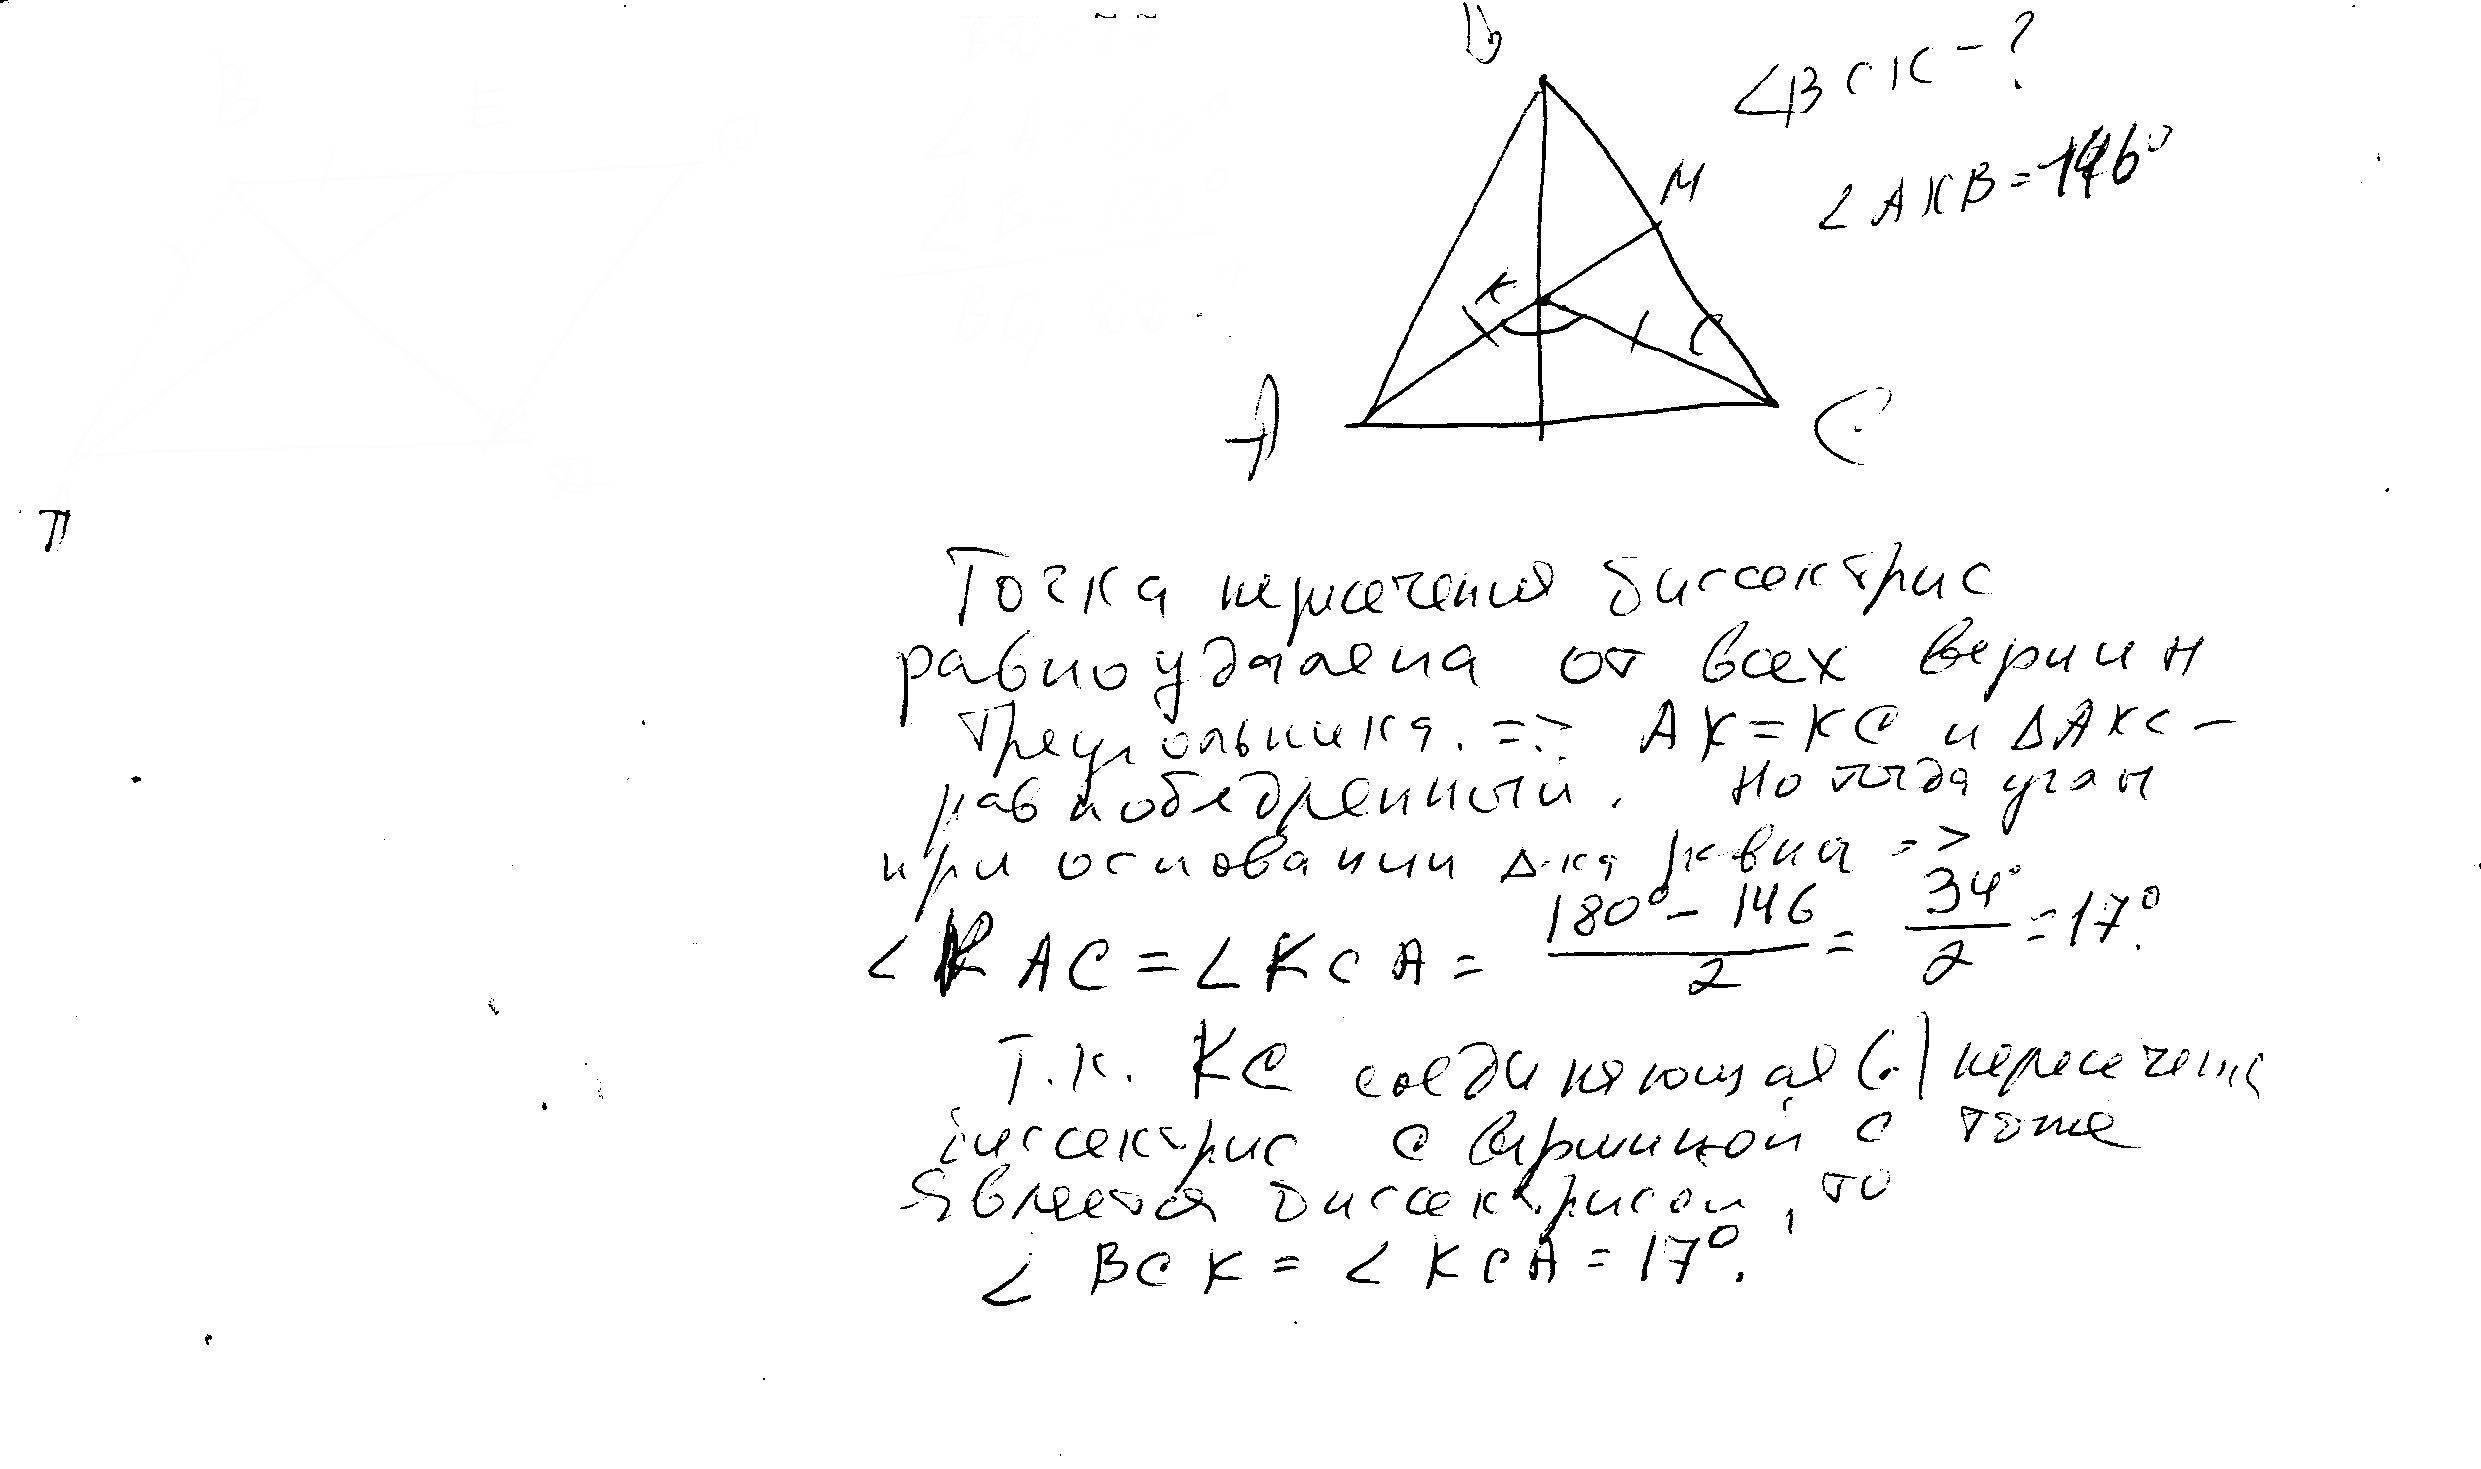 В
∠BCK - ?
∠AKB = 146°
M
K
C
A
C
π
Точка пересечения биссектрис
равноудалена от всех вершин
треугольника. => AK = KC и ΔAKC -
равнобедренный. Но тогда угол
при основании Δ-ка равны =>
∠KAC = ∠KCA = (180° - 146)/2 = 34°/2 = 17°.
Т.к. KC соединяющая (.) пересечения
биссектрис с вершиной C тоже
является биссектрисой, то
∠BCK = ∠KCA = 17°.